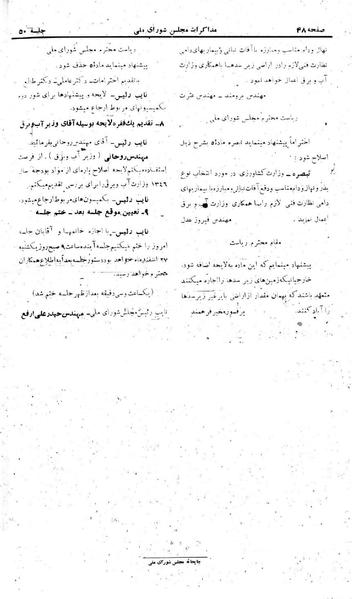 صفحه ۴۸
مذاکرات مجلس شورای ملی
جلسه ۵۰
نهاز و راه مناسب و مبارزه با آفات نباتی و بیماریهای دامی
نظارت فنی لازم را در اراضی زیر سدها با همکاری وزارت
آب و برق اعمال خواهد نمود.
مهندس برومند - مهندس عترت
ریاست محترم مجلس شورای ملی
احتراماً پیشنهاد مینماید تبصره ماده ۵ بشرح ذیل
اصلاح شود:
تبصره - وزارت کشاورزی در مورد انتخاب نوع
بذر و نهاز و راه مناسب و دفع آفات نباتی و مبارزه با بیماریهای
دامی نظارت فنی لازم را با همکاری وزارت آب و برق
اعمال نمایند. مهندس فیروز عدل
مقام محترم ریاست
پیشنهاد مینمایم که این ماده به لایحه اضافه شود.
خارجیانیکه زمین‌های زیر سدها را اجاره میکنند
متعهد باشند که بهمان مقدار از اراضی بایر غیر زیر سدها
را آباد کنند. پرفسور مخبر فرهمند
ریاست محترم مجلس شورای ملی
پیشنهاد مینماید ماده حذف شود.
با تقدیم احترامات - دکتر عاملی - دکتر
نایب رئیس - لایحه و پیشنهادها برای شور دوم
بکمیسیونهای مربوط ارجاع میشود.
۸ - تقدیم یک فقره لایحه بوسیله آقای وزیر آب و برق
نایب رئیس - آقای مهندس روحانی بفرمائید.
مهندس روحانی (وزیر آب و برق) - از فرصت
استفاده میکنم لایحه اصلاح پاره‌ای از مواد بودجه سال
۱۳۴۶ وزارت آب و برق را برای بررسی تقدیم میکنم.
نایب رئیس - بکمیسیون‌های مربوط ارجاع میشود.
۹ - تعیین موقع جلسه بعد - ختم جلسه
نایب رئیس - با اجازه خانمها و آقایان جلسه
امروز را ختم میکنیم جلسه آینده ساعت ۹ صبح روز یکشنبه
۲۷ اسفندماه خواهد بود دستور جلسه بعد به اطلاع همکاران
محترم خواهد رسید.
(یکساعت و سی دقیقه بعد از ظهر جلسه ختم شد)
نایب رئیس مجلس شورای ملی - مهندس حیدرعلی ارفع
چاپخانه مجلس شورای ملی